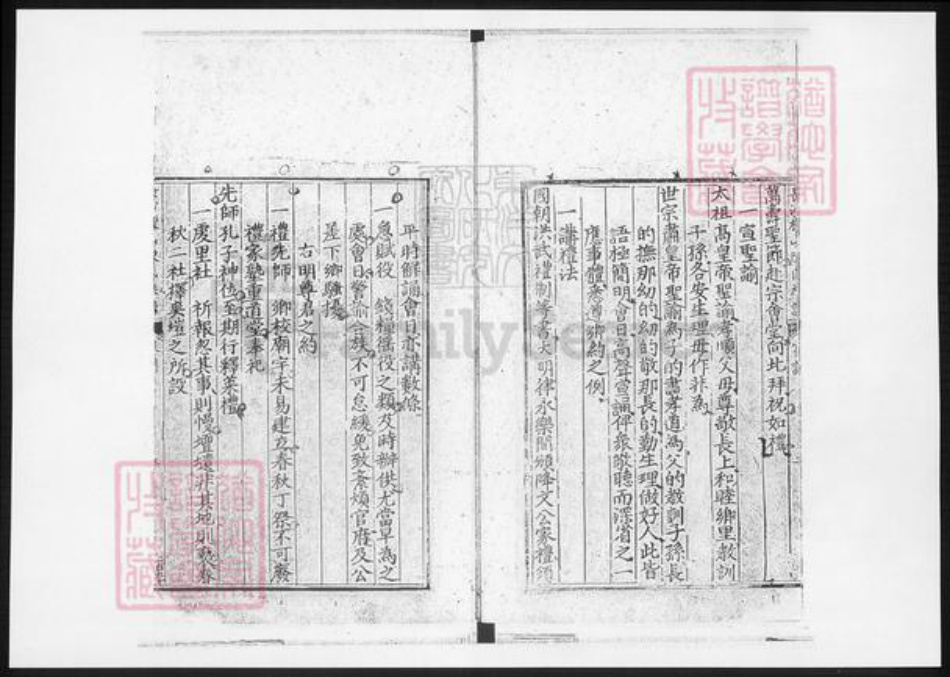 萬壽聖節赴宗會堂向北拜祝如禮
一宣聖諭
太祖高皇帝聖諭孝順父母尊敬長上和睦鄉里教訓
子孫各安生理毋作非為
世宗肅皇帝聖諭為子的盡孝道為父的教訓子孫長
的撫那幼的幼的敬那長的勤生理做好人此皆
語極簡明會日高聲宣誦俾眾敬聽而深省之一
應事體悉遵鄉約之例
一講禮法
國朝洪武禮制等書大明律永樂間頒降文公家禮須
平時解誦會日亦講數條
一急賦役 錢糧徭役之類及時辦供尤當早為之
處會日警諭合族不可怠緩免致紊煩官府及公
差下鄉騷擾
右明尊君之約
一禮先師 鄉校廟宇未易建立春秋丁祭不可廢
禮家塾重道堂奉祀
先師孔子神位至期行釋菜禮
一處里社 祈報忽其事則慢壇壝非其地則褻春
秋二社擇奠壇之所設
FamilySearch